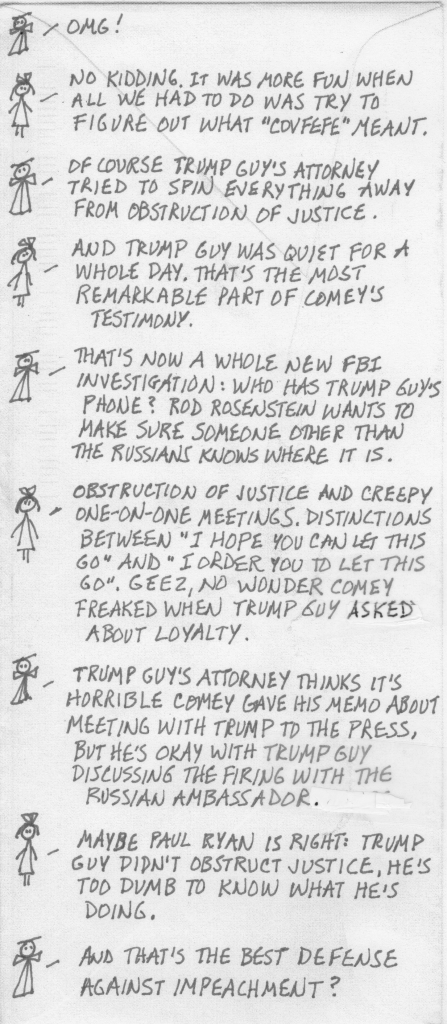 OMG!
NO KIDDING. IT WAS MORE FUN WHEN
ALL WE HAD TO DO WAS TRY TO
FIGURE OUT WHAT "COVFEFE" MEANT.
OF COURSE TRUMP GUY'S ATTORNEY
TRIED TO SPIN EVERYTHING AWAY
FROM OBSTRUCTION OF JUSTICE.
AND TRUMP GUY WAS QUIET FOR A
WHOLE DAY. THAT'S THE MOST
REMARKABLE PART OF COMEY'S
TESTIMONY.
THAT'S NOW A WHOLE NEW FBI
INVESTIGATION: WHO HAS TRUMP GUY'S
PHONE? ROD ROSENSTEIN WANTS TO
MAKE SURE SOMEONE OTHER THAN
THE RUSSIANS KNOWS WHERE IT IS.
OBSTRUCTION OF JUSTICE AND CREEPY
ONE-ON-ONE MEETINGS. DISTINCTIONS
BETWEEN "I HOPE YOU CAN LET THIS
GO" AND "I ORDER YOU TO LET THIS
GO". GEEZ, NO WONDER COMEY
FREAKED WHEN TRUMP GUY ASKED
ABOUT LOYALTY.
TRUMP GUY'S ATTORNEY THINKS IT'S
HORRIBLE COMEY GAVE HIS MEMO ABOUT
MEETING WITH TRUMP TO THE PRESS,
BUT HE'S OKAY WITH TRUMP GUY
DISCUSSING THE FIRING WITH THE
RUSSIAN AMBASSADOR.
MAYBE PAUL RYAN IS RIGHT: TRUMP
GUY DIDN'T OBSTRUCT JUSTICE, HE'S
TOO DUMB TO KNOW WHAT HE'S
DOING.
AND THAT'S THE BEST DEFENSE
AGAINST IMPEACHMENT?